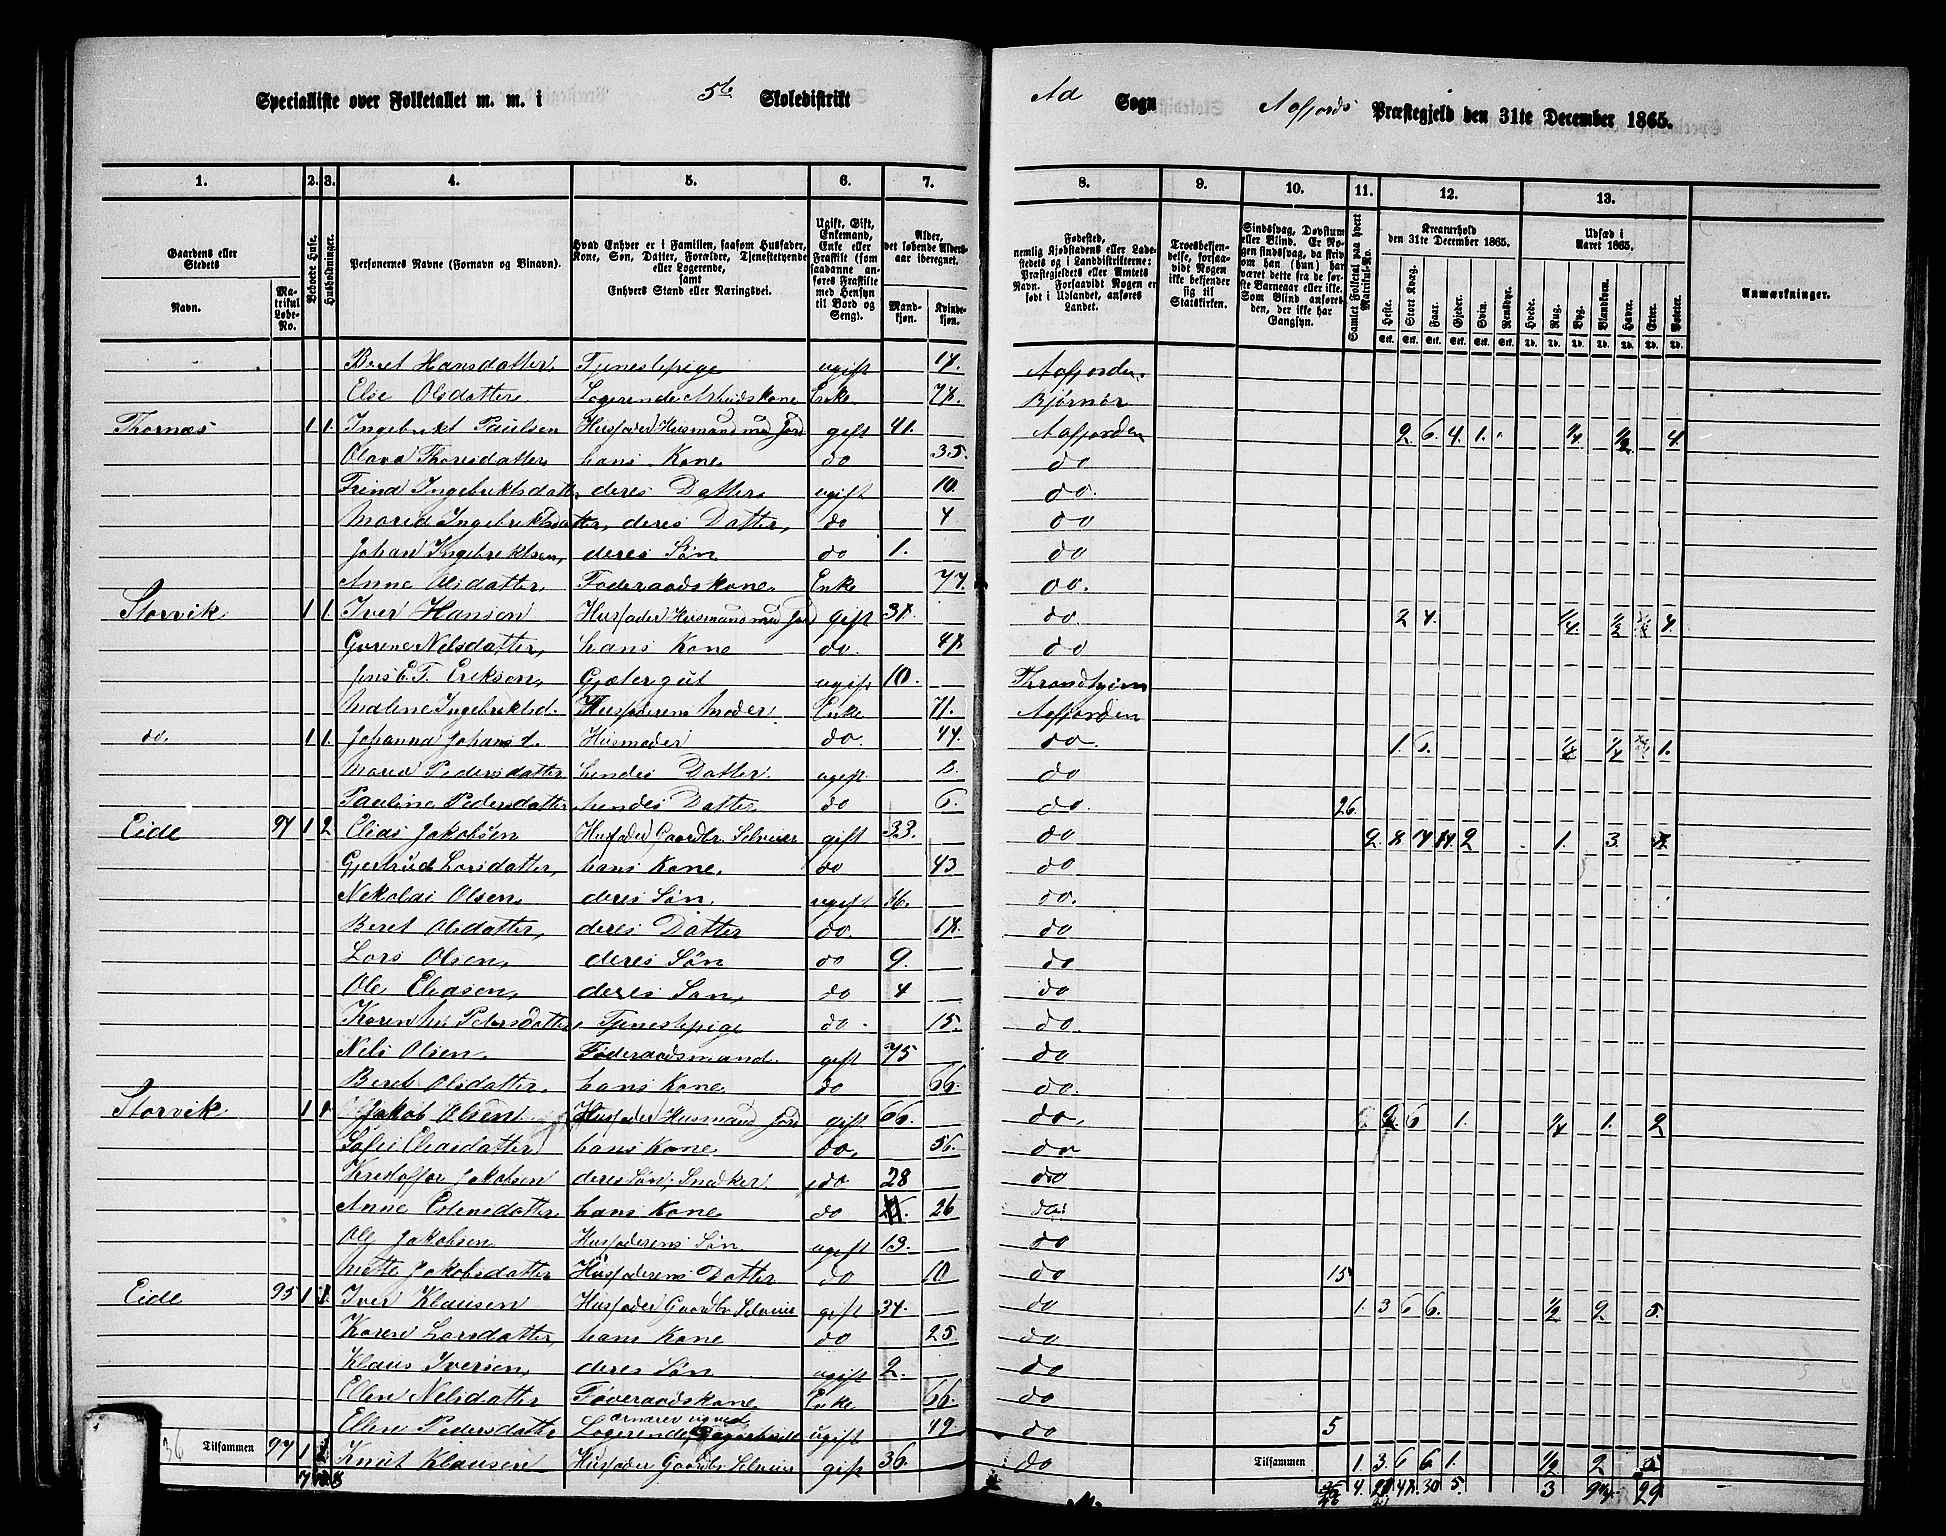 Specialliste over Folketallet m. m. i 5te Skoledistrikt Aa Sogn Aafjords Præstegjeld den 31te December 1865.
1. 2. 3. 4. 5. 6. 7. 8. 9. 10. 11. 12. 13.
Gaardens eller Stedets
Navn.
Matrikul Løbe-No.
Beboede Huse.
Husholdninger.
Personernes Navne (Fornavn og Binavn).
Hvad Enhver er i Familien, saasom Husfader, Kone, Søn, Datter, Forældre, Tjenestetyende eller Logerende, samt Enhvers Stand eller Næringsvei.
Ugift, Gift, Enkemand, Enke eller Fraskilt (som saadanne anføres Fraskilte med Hensyn til Bord og Seng).
Alder, det løbende Aldersaar iberegnet.
Mandkjøn.
Kvindekjøn.
Fødested, nemlig Kjøbstadens eller Ladestedets og i Landdistrikterne: Præstegjeldets eller Amtets Navn. Forsaavidt Nogen er født i Udlandet, anføres Landet.
Troesbekjendelse, forsaavidt Nogen ikke bekjender sig til Statskirken.
Sindssvag, Døvstum eller Blind. Er Nogen sindssvag, da skrives om han (hun) har været dette fra de første Barneaar eller ikke. Som Blind anføres den, der ikke har Gangsyn.
Samlet Folketal paa hvert Matrikul-No.
Kreaturhold den 31te December 1865.
Heste. Stort Kvæg. Faar. Gjeder. Svin. Rensdyr.
Udsæd i Aaret 1865.
Hvede. Rug. Byg. Blandkorn. Havre. Erter. Poteter.
Anmærkninger.
Beret Hansdatter. Tjenestepige ugift Aafjorden.
Else Olsdatter Logerende Arbeidskone Enke Bjørnør
Thornæs 1 1. Ingebrikt Paulsen Husfader Husmand med Jord gift 41. Aafjorden 2. 6. 4. 1. 4.
Olava Thorsdatter hans Kone do 35. do
Ingebriktsdatter deres Datter ugift 10. do.
Mared Ingebriktsdatter, deres Datter, do 4 do
Johan Ingebriktsen, deres Søn do 1. do
Anne Olsdatter, Føderaadskone. Enke 77. do.
Storvik 1 1. Iver Hansen Husfader Husmand med Jord gift do. 2 4. 4.
Nilsdatter, hans Kone do. do
Jens E. T. Eriksen, Gjætergut ugift 10. Throndhjem
Malene Ingebriktsd. Husfaderens Moder Enke 71. Aafjorden
do. 1 1. Johanna Johansd. Husmoder do. 47. do. 1. 6. 1.
Mared Pedersdatter hendes Datter. ugift. do
Pauline Pedersdatter hendes Datter do 6. do. 26.
Eide 1 2 Elias Jakobsen Husfader Gaardbr. Selveier gift 33. do 2. 2 1. 3.
Gjertrud Larsdatter, hans Kone. do 43 do
Nekolai Olsen, deres Søn. ugift 16. do.
Beret Olsdatter, deres Datter do. 18. do
Lars Olsen, deres Søn do 9. do
Ole Eliasen, deres Søn, do 4 do
Pedersdatter, Tjenestepige do. 15. do.
Nils Olsen. Føderaadsmand. gift 75 do
Beret Olsdatter. hans Kone. do 66. do.
Storvik 1 1 Jakob Olsen Husfader Husmand Jord gift 66. do, 6 1. 1. 2
Eliasdatter hans Kone. do, 56. do
Kristoffer Jakobsen deres Søn. Snedker. do 28 do
Anne hans Kone do 26 do.
Ole Jakobsen Husfaderens Søn ugift 13. do
Mette Jakobsdatter Husfaderens Datter do 10 do 15
Eide 95 1 Iver Klausen Husfader Gaardbr Selveier gift 34. do 1. 3 6 6. ½ 2. 5.
Karen Larsdatter, hans Kone do 25 do
Klaus Iversen, deres Søn ugift 2. do
Ellen Nelsdatter Føderaadskone Enke 66. do
Ellen Pedersdatter Logerende, ugift 49. do 5
Tilsammen 97 1 Knut Klausen Husfader Gaardbr Selveier gift 36. do Tilsammen 1. 3 6 6 1. ½ 2 5
4. 30 5. 3 29